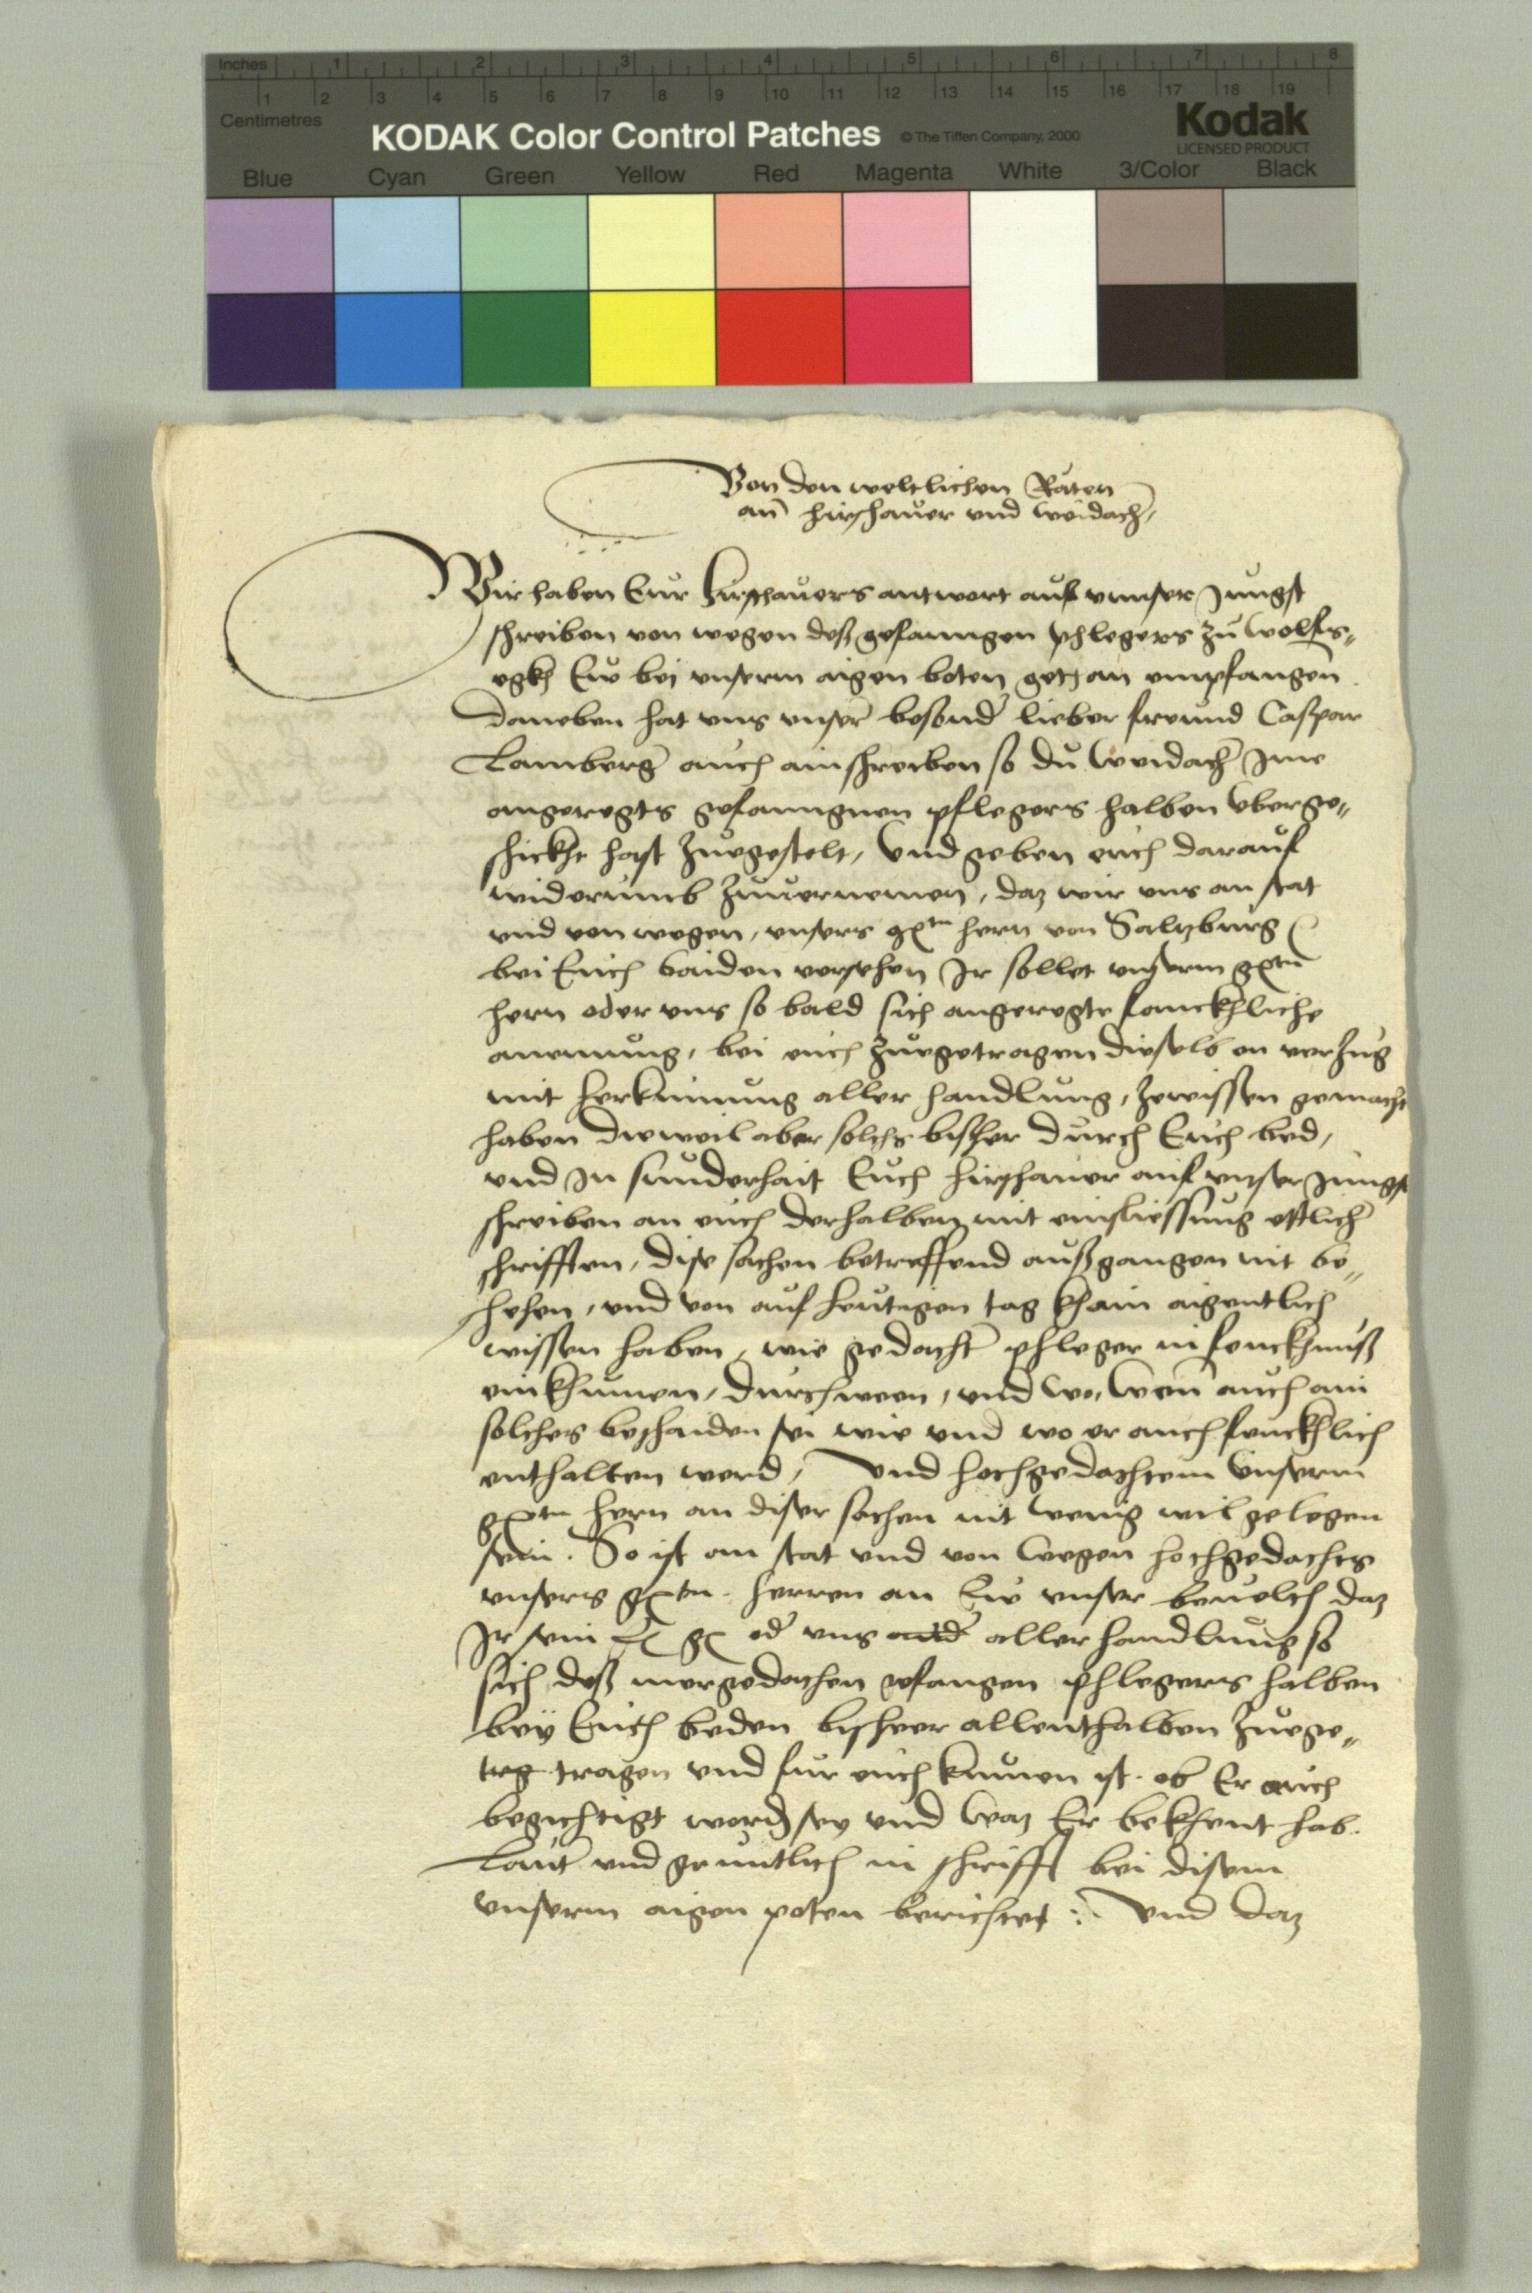 Inches 1 2 3 4 5 6 7 8
1 2 3 4 5 6 7 8 9 10 11 12 13 14 15 16 17 18 19
Centimetres
KODAK Color Control Patches © The Tiffen Company, 2000 Kodak
LICENSED PRODUCT
Blue Cyan Green Yellow Red Magenta White 3/Color Black
Von den weltlichen Räten
an hirschauer vnd weidach,
Wir haben Eur hirschauers antwort auf vnnser Jungst
schreiben von wegen deß gefanngen phlegers zu Wolfs„
egkh Euv bei vnserm aigen boten gethan empfangen
Daneben hat vns vnser besonder lieber freund Caspar
Lamberg auch ain schreiben so du Weidach Ime
angeregts gefanngnen pflegers halben vberge„
schickht hast zuegestelt, Vnd geben euch darauf
widerumb zuuernemen, daz wir vns an stat
vnd von wegen, vnsers gsten hern von Saltzburg
bei Euch baiden versehen Ir sollet vnserm gsten
hern oder vns so bald sich angeregte fanckhliche
annemung, bei euch zuegetragen dieselb on verzug
mit herkumung aller handlung, zewissen gemacht
haben Dieweil aber solchs bisher durch Euch bed,
vnd In sunderhait Euch hirschauer auf vnser Jungst
schreiben an euch derhalben mit einsliessung ettlicher
schrifften, dise sachen betreffend außgangen nit be„
schehen, vnd von auf heutigen tag khain aigentlich
wissen haben, wie gedachter phleger in fenckhnuß
ein khumen, durch ween, vnd wo, Wem auch ain
solches beschaiden sei wie vnd wo er auch fenckhlich
enthalten werd, Vnd hochgedachtem Vnserm
gsten hern an diser sachen nit wenig wil gelegen
sein. So ist an stat vnd von wegen hochgedachts
vnsers gsten herren an Euv vnser beuelch daz
Ir sein f g oder vns aller handlung so
sich deß mergedachen gefangen phlegers halben
bey Euch beden bisheer allenthalben zuege„
trg tragen vnd fur euch kumen ist. ob Er auch
begichtigt worden sey vnd Waz Er bekhent hab.
Lauter vnd gruntlich in schrifft bei disem
vnserm aigen poten berichtet :. Vnd daz